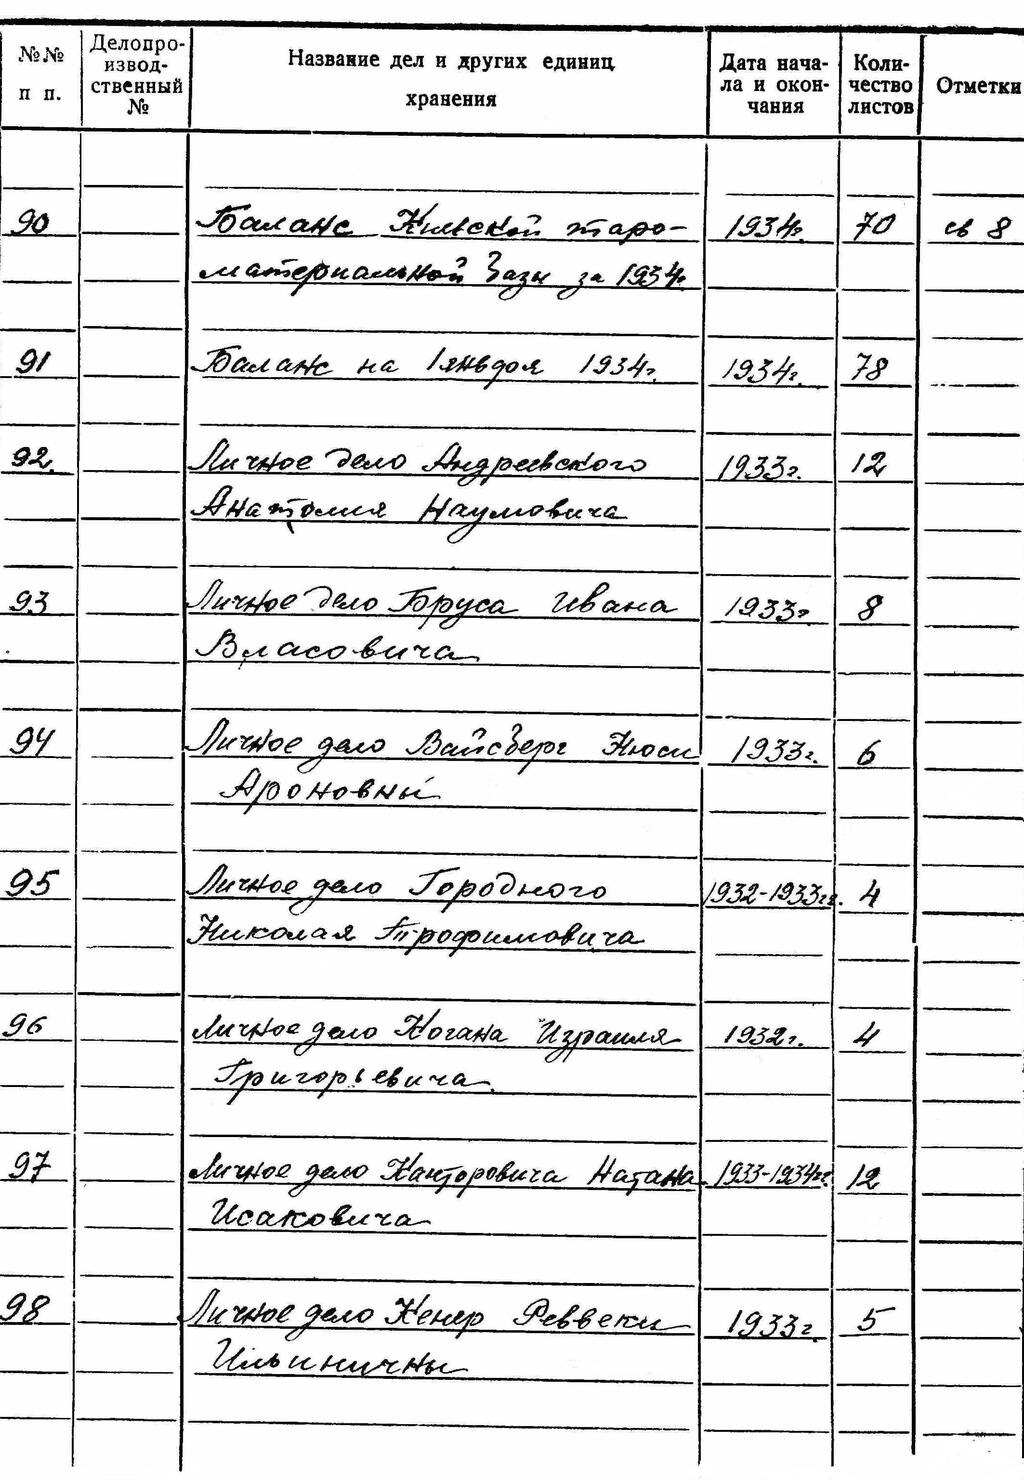 №№ п п.
Делопро-
извод-
ственный
№
Название дел и других единиц
хранения
Дата нача-
ла и окон-
чания
Коли-
чество
листов
Отметки
90 Баланс Киевской таро- 1934г. 70 св 8
материальной базы за 1934г.
91 Баланс на 1 января 1934г. 1934г. 78
92. Личное дело Андреевского 1933г. 12
Анатолия Наумовича
93 Личное дело Боруса Ивана 1933г 8
Власовича
94 Личное дело Вайсберг Нюси 1933г. 6
Ароновны
95 Личное дело Городного 1932-1933гг. 4
Николая Трофимовича
96 Личное дело Когана Израиля 1932г. 4
Григорьевича
97 Личное дело Канторовича Натана 1933-1934гг. 12
Исаковича
98 Личное дело Кенер Реввеки 1933г. 5
Ильиничны